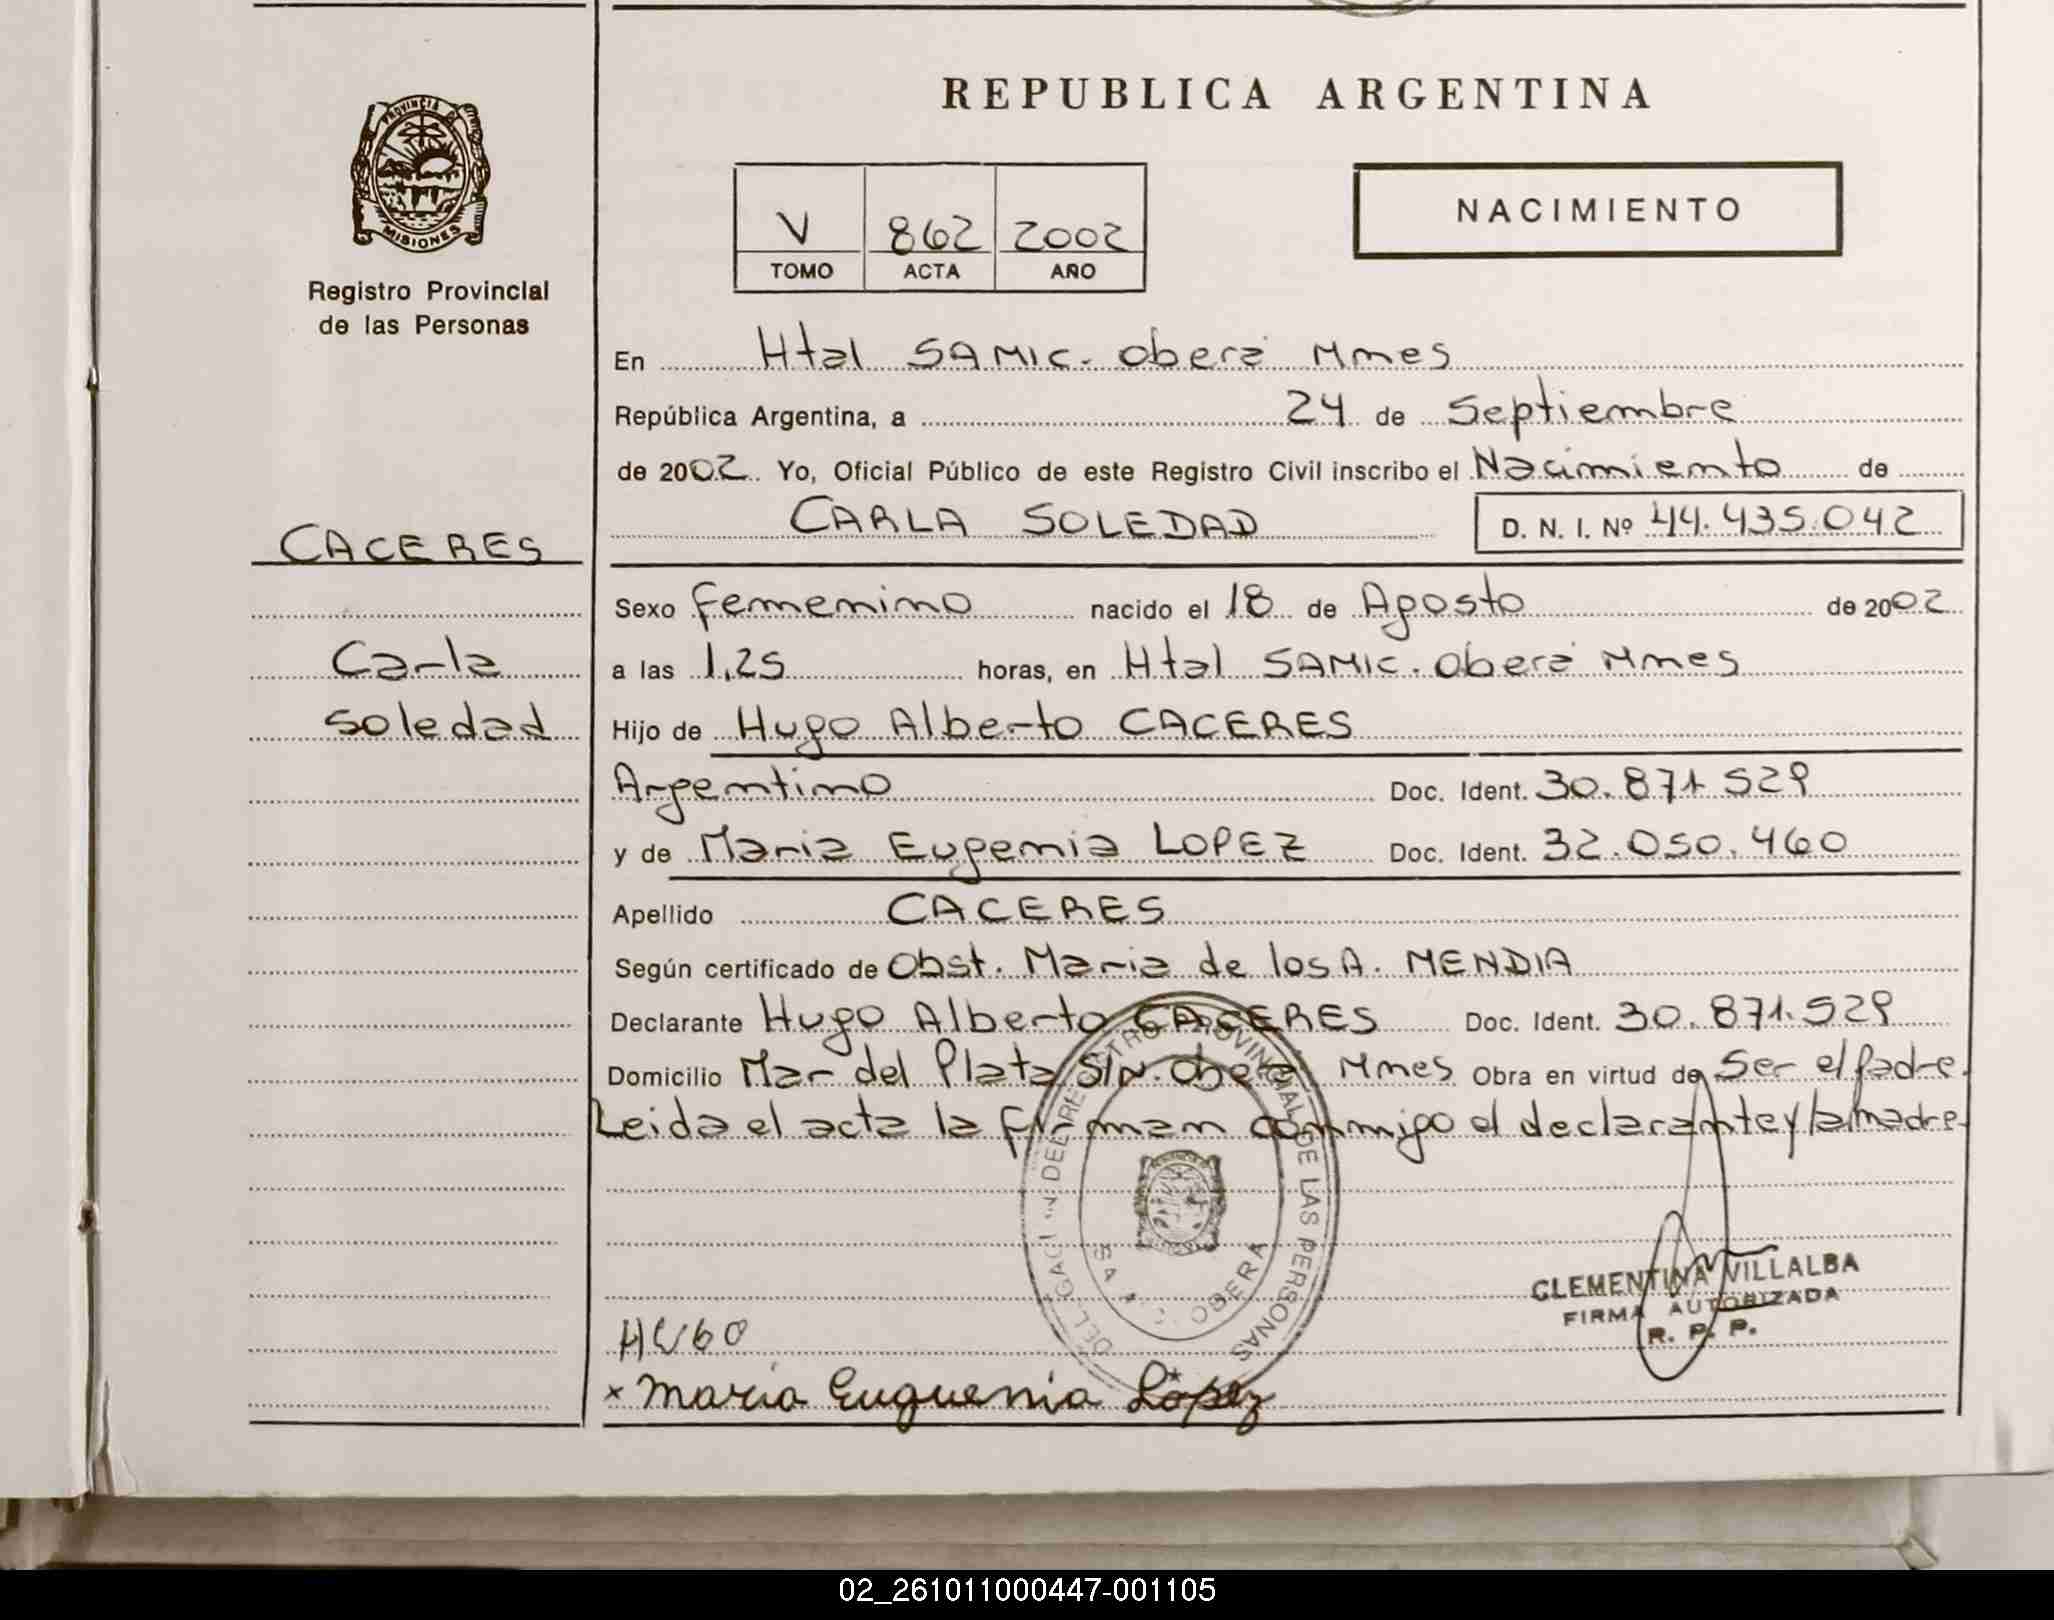 REPUBLICA ARGENTINA
PROVINCIA DE
MISIONES
Registro Provincial
de las Personas
V 862 2002
TOMO ACTA AÑO
NACIMIENTO
En Htal SAMIC. Oberá Mnes
República Argentina, a 24 de Septiembre
de 2002. Yo, Oficial Público de este Registro Civil inscribo el Nacimiento de
CARLA SOLEDAD D. N. I. Nº 44.435.042
CACERES
Carla
Soledad
Sexo femenino nacido el 18 de Agosto de 2002
a las 1,25 horas, en Htal SAMIC. Oberá Mnes
Hijo de Hugo Alberto CACERES
Argentino Doc. Ident. 30.871.529
y de Maria Eugenia LOPEZ Doc. Ident. 32.050.460
Apellido CACERES
Según certificado de Obst. Maria de los A. MENDIA
Declarante Hugo Alberto CACERES Doc. Ident. 30.871.529
Domicilio Mar del Plata S/N. Oberá Mnes Obra en virtud de Ser el padre.
Leida el acta la firman conmigo el declarante y la madre
DEL REGISTRO PROVINCIAL DE LAS PERSONAS
OBERA
CLEMENTINA VILLALBA
FIRMA AUTORIZADA
R. P. P.
HUGO
x Maria Euguenia Lopez
02_261011000447-001105